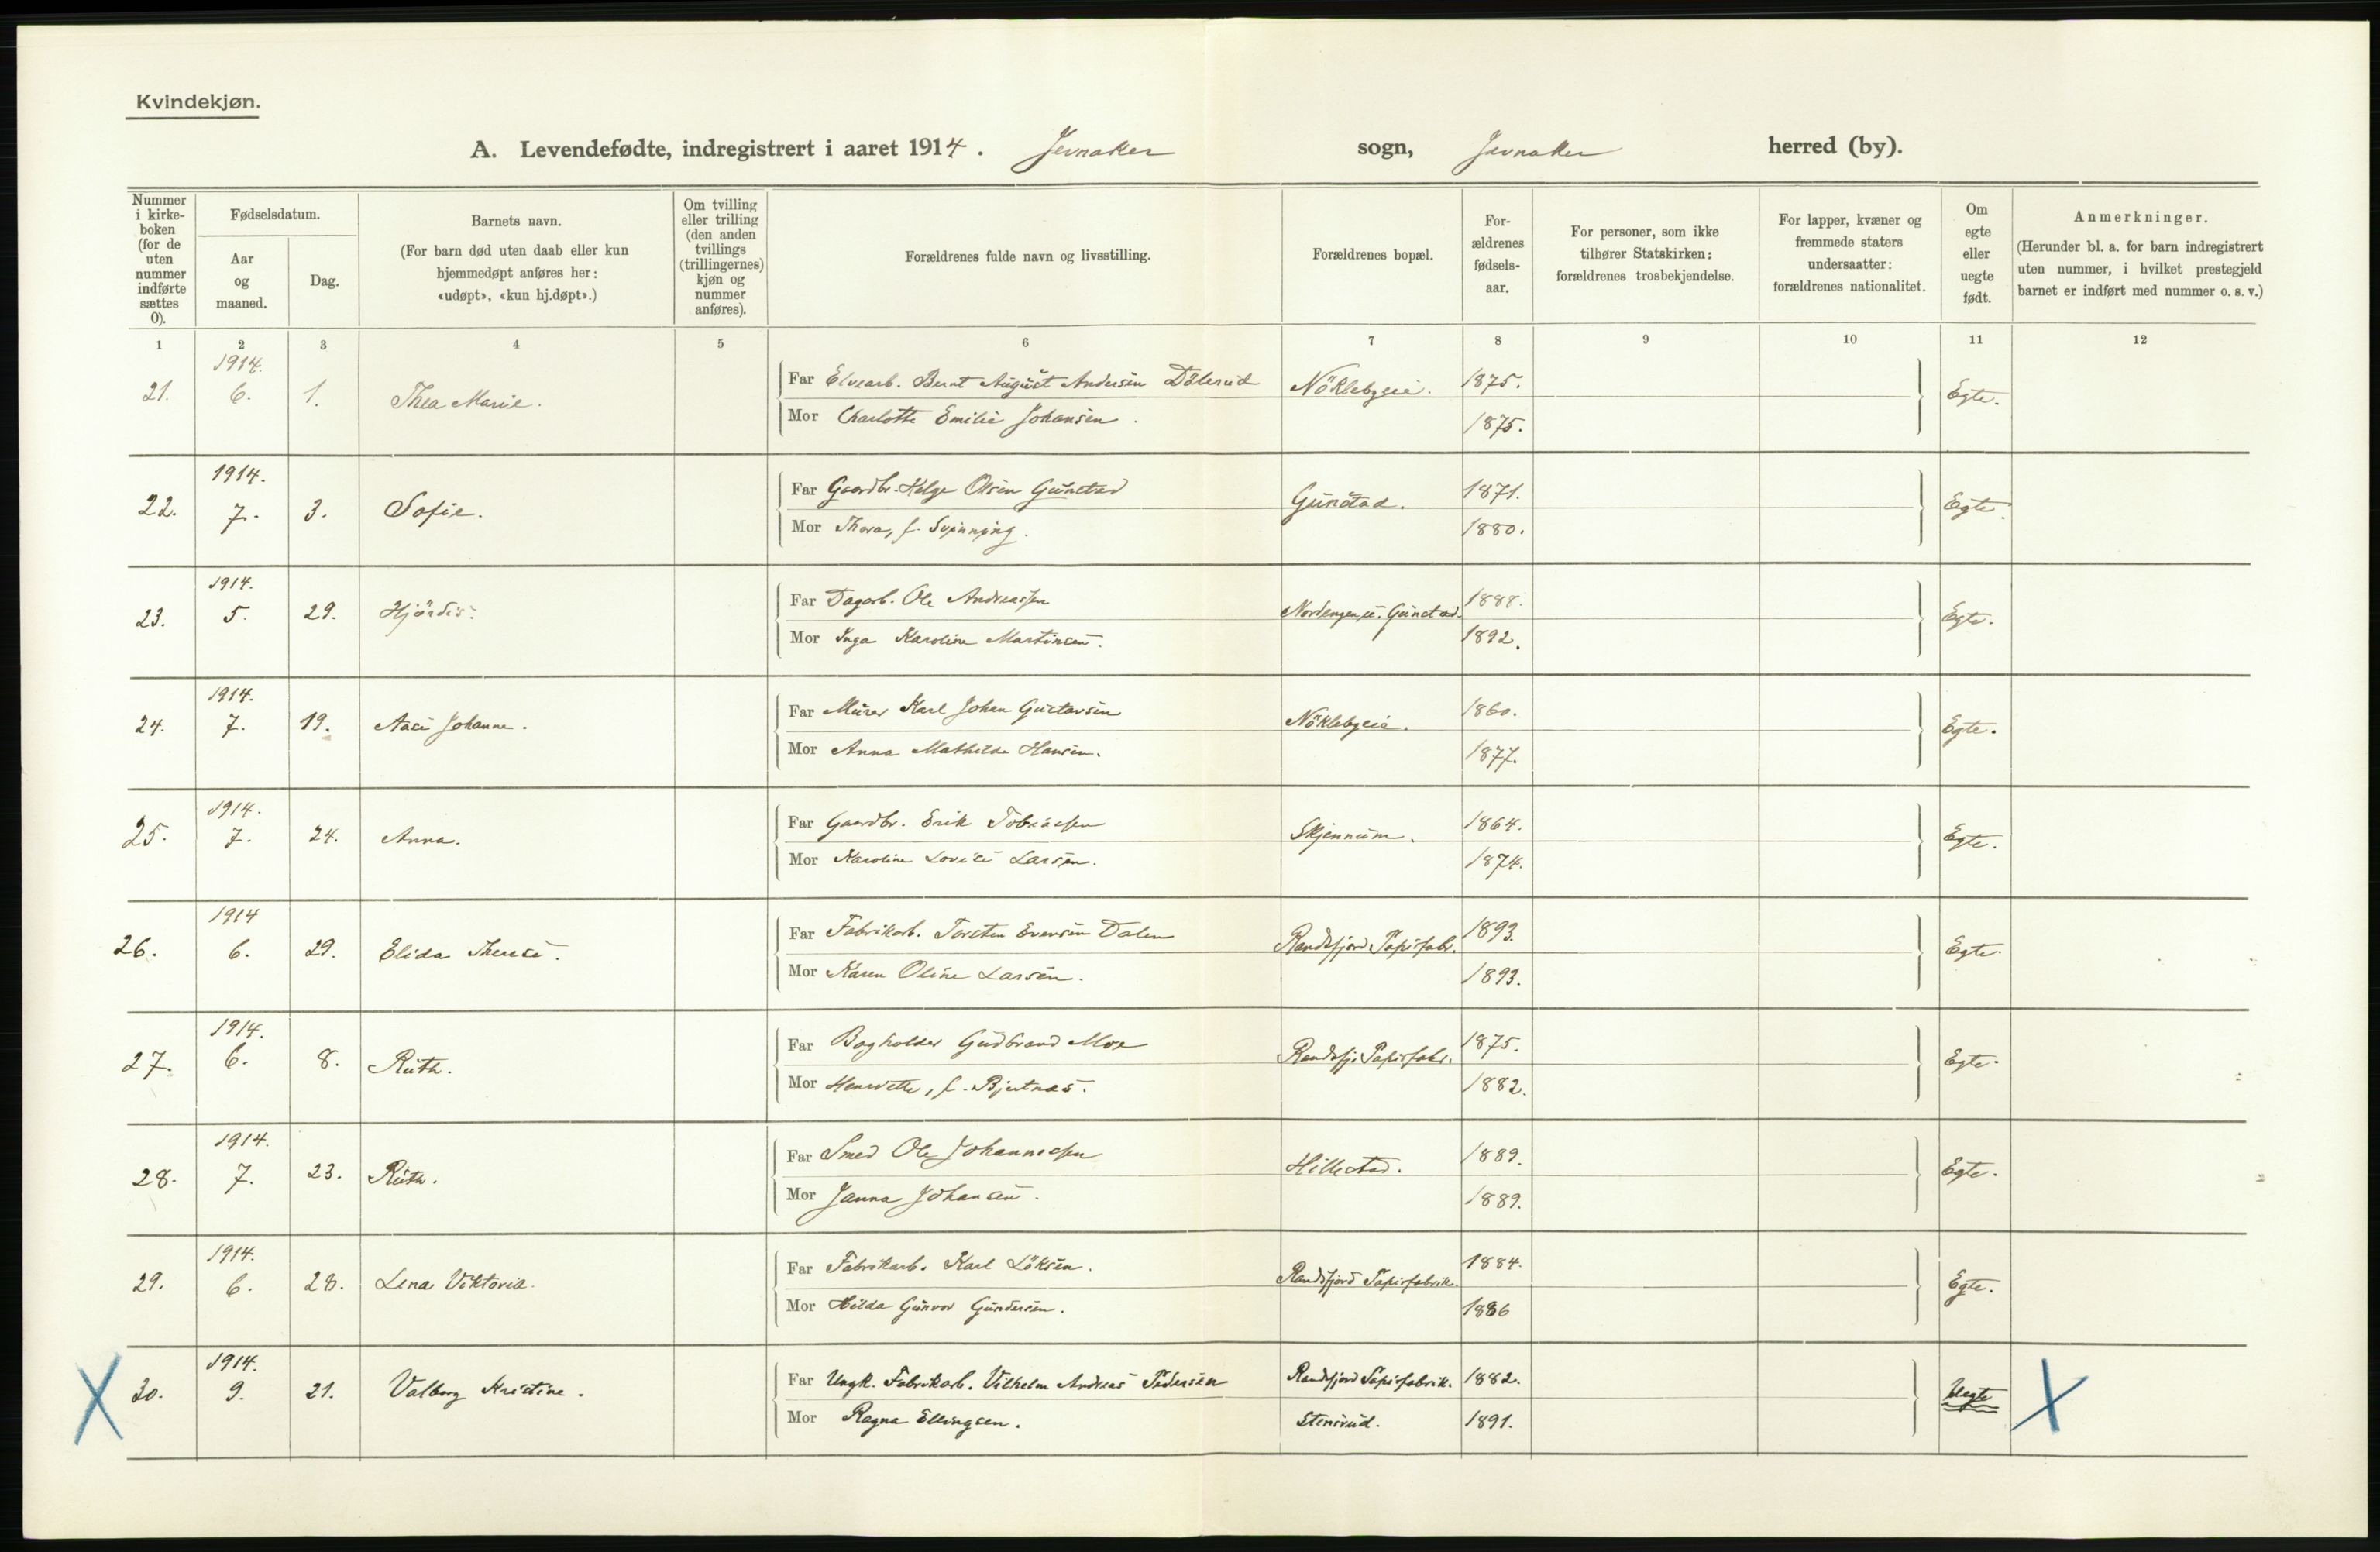 Kvindekjøn.
A. Levendefødte, indregistrert i aaret 1914. Jevnaker sogn, Jevnaker herred (by).
Nummer i kirke-boken (for de uten nummer indførte sættes 0).
Fødselsdatum.
Aar og maaned.
Dag.
Barnets navn.
(For barn død uten daab eller kun hjemmedøpt anføres her: «udøpt», «kun hj.døpt».)
Om tvilling eller trilling (den anden tvillings (trillingernes) kjøn og nummer anføres).
Forældrenes fulde navn og livsstilling.
Forældrenes bopæl.
For-ældrenes fødsels-aar.
For personer, som ikke tilhører Statskirken: forældrenes trosbekjendelse.
For lapper, kvæner og fremmede staters undersaatter: forældrenes nationalitet.
Om egte eller uegte født.
Anmerkninger.
(Herunder bl. a. for barn indregistrert uten nummer, i hvilket prestegjeld barnet er indført med nummer o. s. v.)
1 2 3 4 5 6 7 8 9 10 11 12
1914.
21. 6. 1. Thea Marie. Far Elvearb. Bernt August Andersen Dölerud Nöklebyeie. 1875. Egte.
Mor Charlotte Emilie Johansen. 1875.
1914.
22. 7. 3. Sofie. Far Gaardbr. Helge Olsen Gunstad Gunstad. 1871. Egte.
Mor Thora, f. Svinning. 1880.
1914.
23. 5. 29. Hjördis. Far Dagarb. Ole Andreassen Nordengen u. Gunstad. 1888. Egte.
Mor Inga Karoline Martinsen. 1892.
1914.
24. 7. 19. Aase Johanne. Far Murer Karl Johan Gustavsen Nöklebyeie. 1860. Egte.
Mor Anna Mathilde Hansen. 1877.
1914.
25. 7. 24. Anna. Far Gaardbr. Erik Tobiassen Skjennum. 1864. Egte.
Mor Karoline Lovise Larsen. 1874.
1914
26. 6. 29. Elida Therese. Far Fabrikarb. Torsten Evensen Dalen Randsfjord Papirfabr. 1893. Egte.
Mor Karen Oline Larsen. 1893.
1914.
27. 6. 8. Ruth. Far Bogholder Gudbrand Moe Randsfj. Papirfabr. 1875. Egte.
Mor Henriette, f. Bjertnæs. 1882.
1914.
28. 7. 23. Ruth. Far Smed Ole Johannessen Hillestad. 1889. Egte.
Mor Janna Johansen. 1889.
1914.
29. 6. 28. Lena Viktoria. Far Fabrikarb. Karl Löksen. Randsfjord Papirfabrik. 1884. Egte.
Mor Hilda Gunvor Gundersen. 1886
1914.
30. 9. 21. Valborg Kristine. Far Ungk. Fabrikarb. Vilhelm Andreas Pedersen Randsfjord Papirfabrik. 1882. Uegte
Mor Ragna Ellingsen. Stensrud. 1891.